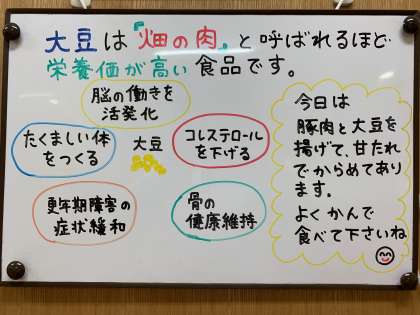 大豆は『畑の肉』と呼ばれるほど
栄養価が高い食品です。
脳の働きを
活発化
たくましい体
をつくる
大豆
コレステロール
を下げる
更年期障害の
症状緩和
骨の
健康維持
今日は
豚肉と大豆を
揚げて、甘たれ
でからめてあり
ます。
よくかんで
食べて下さいね